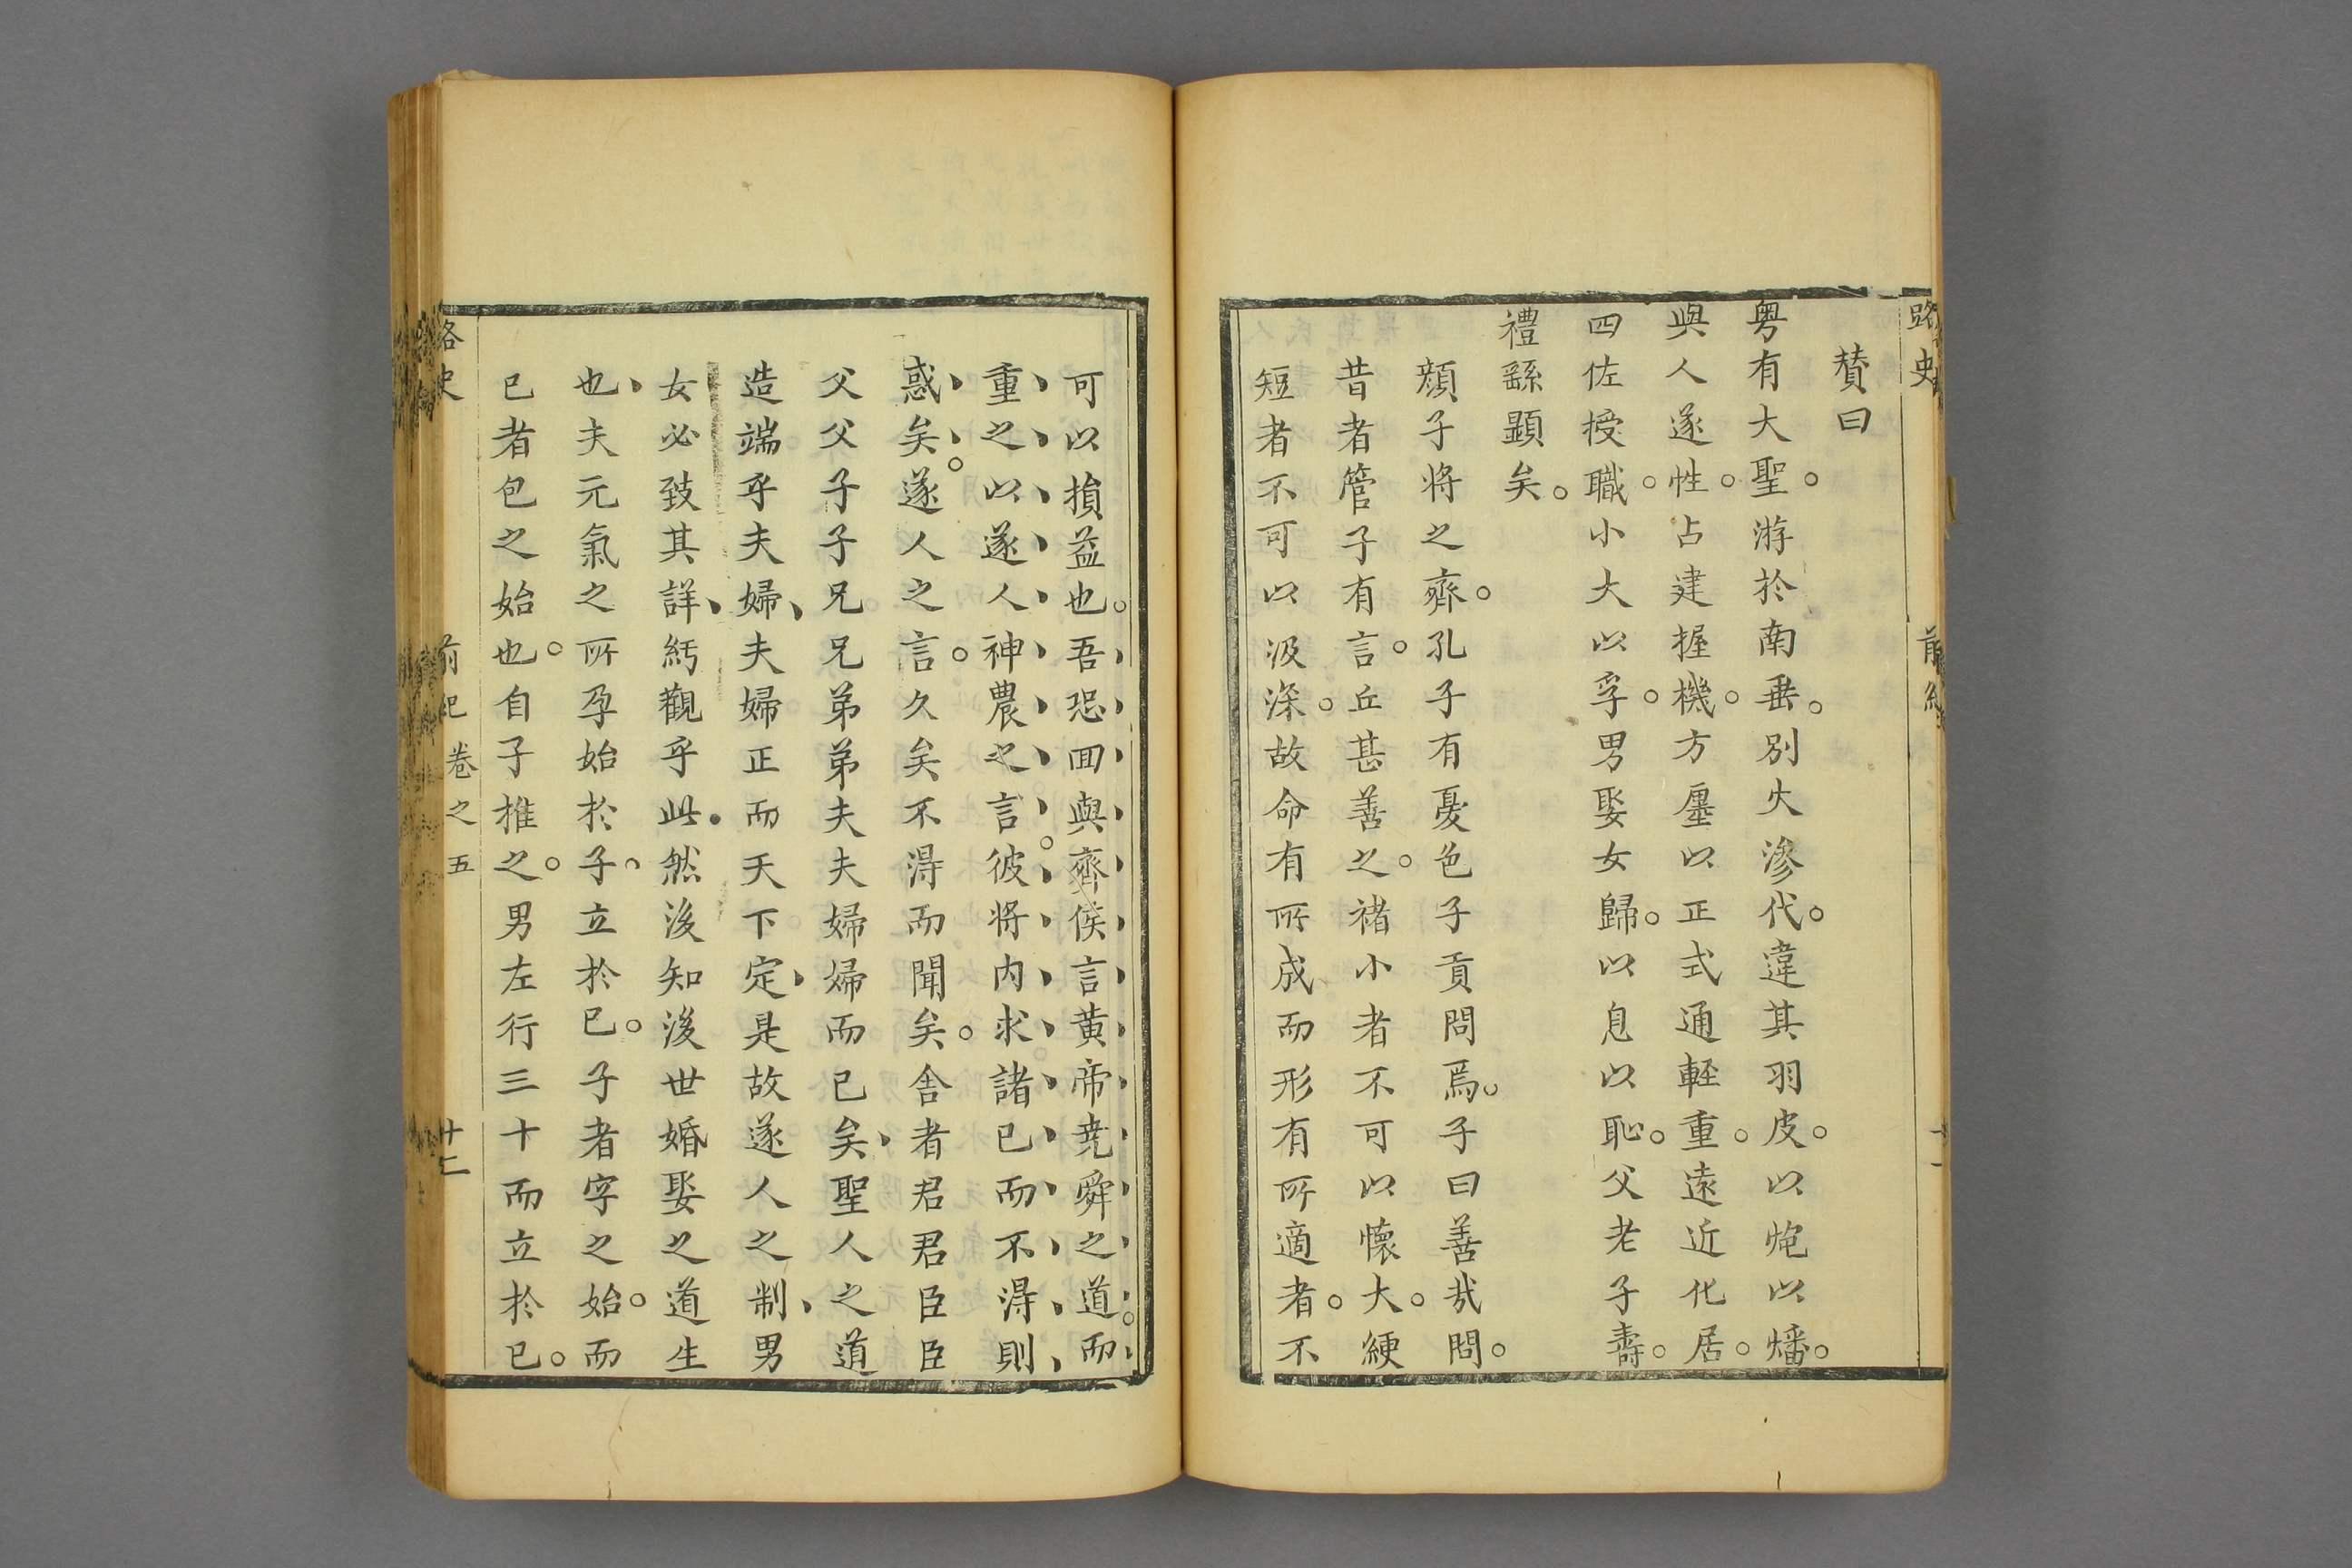 路史
前紀
贊曰
粤有大聖。游於南垂。別火滲代。違其羽皮。以炮以燔。
與人遂性。占建握機。方壥以正式通輕重。遠近化居。
四佐授職。小大以孚。男娶女歸。以息以恥。父老子壽。
禮繇顯矣。
顔子將之齊。孔子有憂色子貢問焉。子曰善哉問。
昔者管子有言。丘甚善之。褚小者不可以懷大。綆
短者不可以汲深。故命有所成而形有所適者。不
可以損益也。吾恐囬與齊侯言黄帝尭舜之道。而
重之以遂人神農之言。彼將内求諸已而不得則
惑矣。遂人之言。久矣不得而聞矣。舍者君君臣臣
父父子子兄兄弟弟夫夫婦婦而已矣、聖人之道
造端乎夫婦、夫婦正而天下定、是故遂人之制、男
女必致其詳、紆觀乎此然後知後世婚娶之道生
也、夫元氣之所孕始於子、立於巳。子者字之始。而
巳者包之始也。自子推之。男左行三十而立於巳。
路史
前紀
卷之五
十二